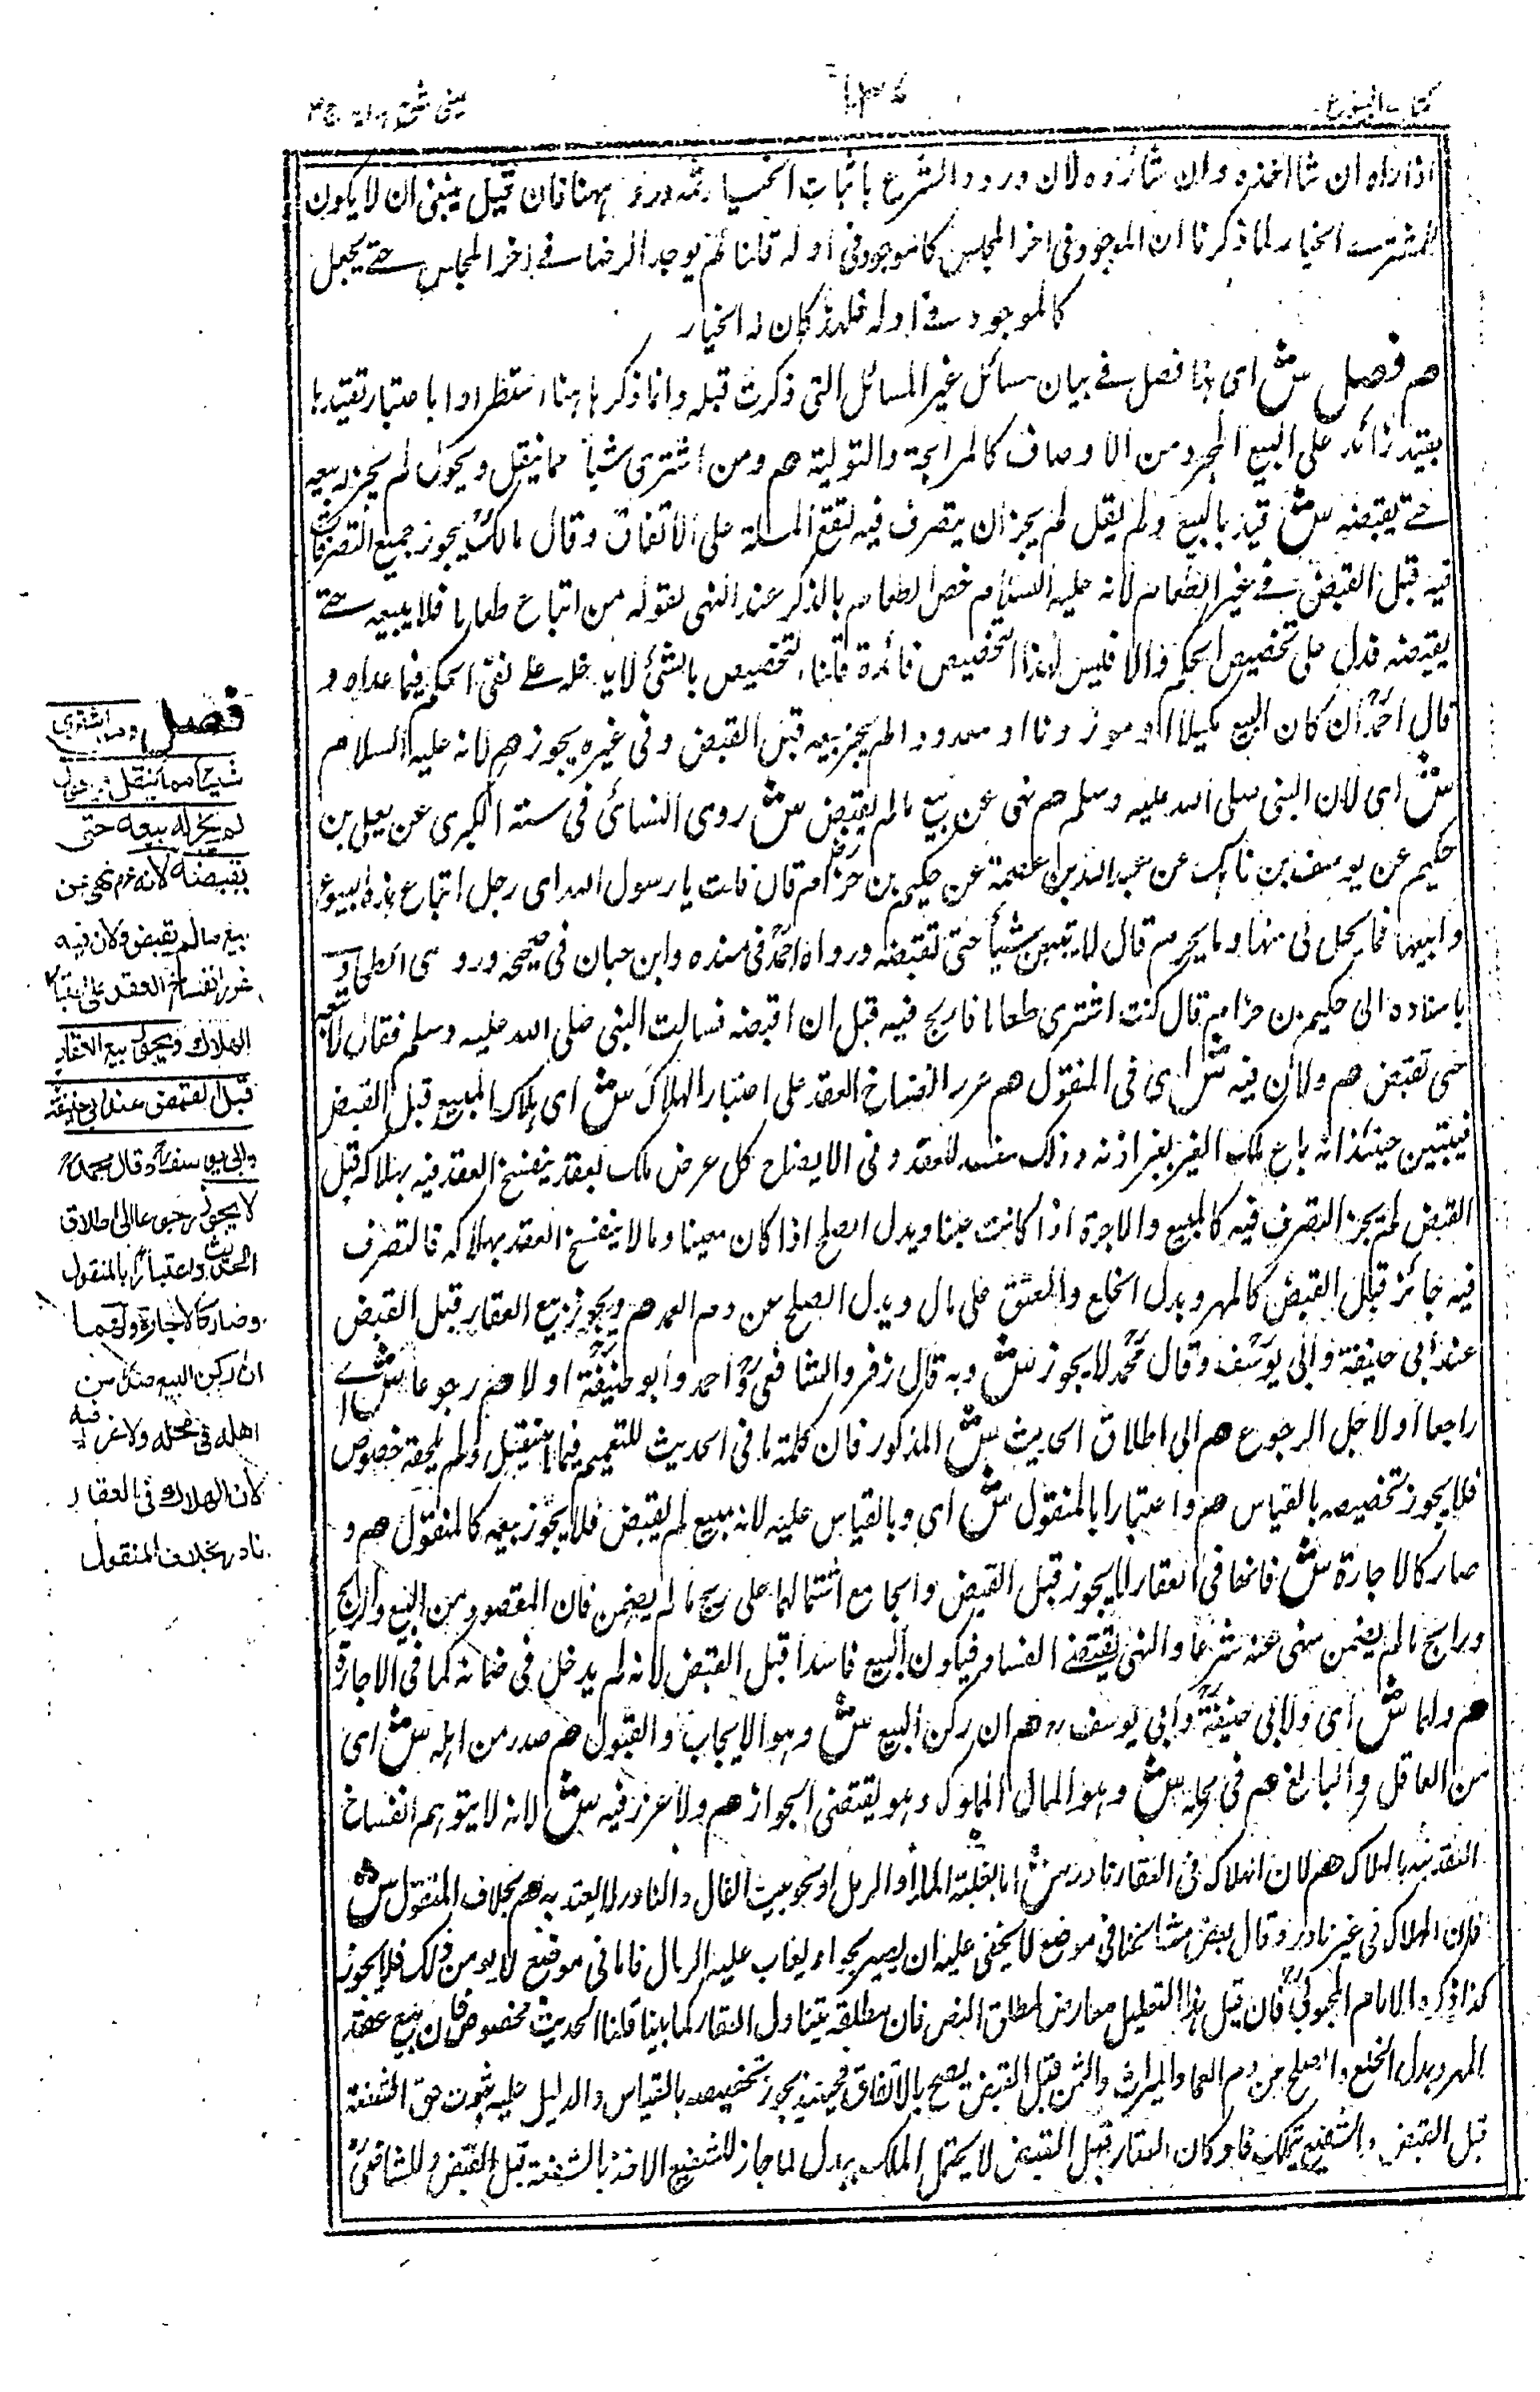 كتاب البيوع
عينى شرح هداية ج ٣
اذا راه ان شا اخذه وان شا رده لان ورود الشرع باثبات الخيار ثمه ورود ههنا فان قيل ينبغى ان لا يكون
للمشترى الخيار لما ذكرنا ان الموجود فى اخر المجلس كالموجود فى اوله قلنا لم يوجد الرضا فى اخر المجلس حتى يجعل
كالموجود فى اوله فلهذا كان له الخيار
هم فصل ش اى هذا فصل فى بيان مسائل غير المسائل التى ذكرت قبله وانما ذكرها هنا استطرادا باعتبار تقيدها
بقيد زائد على البيع المجرد من الاوصاف كالمرابحة والتولية هم ومن اشترى شيأ مما ينقل ويحول لم يجز له بيعه
حتى يقبضه ش قيد بالبيع ولم يقل لم يجز ان يتصرف فيه لتقع المسئلة على الاتفاق وقال مالك يجوز جميع التصرفات
فيه قبل القبض فى غير الطعام لانه عليه السلام خص الطعام بالذكر عند النهى بقوله من ابتاع طعاما فلا يبيعه حتى
يقبضه فدل على تخصيص الحكم والا فليس لهذا التخصيص فائدة قلنا التخصيص بالشئ لا يدخله على نفى الحكم فيما عداه و
قال احمد ان كان المبيع مكيلا او موزونا او معدودا لم يجز بيعه قبل القبض وفى غيره يجوز هم لانه عليه السلام
ش اى لان النبى صلى الله عليه وسلم هم نهى عن بيع مالم يقبض ش روى النسائى فى سننه الكبرى عن يعلى بن
حكيم عن يوسف بن ماهك عن عبدالله بن عصمة عن حكيم بن حزام قال قلت يا رسول الله اى رجل ابتاع هذه البيوع
وابيعها فما يحل لى منها وما يحرم قال لا تبيعن شيأ حتى تقبضه ورواه احمد فى مسنده وابن حبان فى صحيحه وروى الطحاوى
باسناده الى حكيم بن حزام قال كنت اشترى طعاما فاربح فيه قبل ان اقبضه فسالت النبى صلى الله عليه وسلم فقال لا تبعه
حتى تقبض هم ولان فيه ش اى فى المنقول هم غرر انفساخ العقد على اعتبار الهلاك ش اى هلاك المبيع قبل القبض
فيتبين حينئذ انه باع ملك الغير بغير اذنه وذلك مفسد للعقد وفى الايضاح كل عوض ملك بعقد ينفسخ العقد فيه بهلاكه قبل
القبض لم يجز التصرف فيه كالمبيع والاجرة اذا كانت عينا وبدل الصلح اذا كان معينا وما لا ينفسخ العقد بهلاكه فالتصرف
فيه جائز قبل القبض كالمهر وبدل الخلع والعتق على مال وبدل الصلح عن دم العمد هم ويجوز بيع العقار قبل القبض
عند ابى حنيفة وابى يوسف وقال محمد لا يجوز ش وبه قال زفر والشافعى واحمد وابو حنيفة اولا هم رجوعا ش اى
راجعا او لاجل الرجوع هم الى اطلاق الحديث ش المذكور فان كلمة ما فى الحديث للتعميم فيما ينتقل ولم يلحقه خصوص
فلا يجوز تخصيصه بالقياس هم واعتبارا بالمنقول ش اى وبالقياس عليه لانه مبيع لم يقبض فلا يجوز بيعه كالمنقول هم و
صار كالاجارة ش فانها فى العقار لا يجوز قبل القبض والجامع اشتمالهما على ربح مالم يضمن فان المقصود من البيع الربح
وربح مالم يضمن منهى عنه شرعا والنهى يقتضى الفساد فيكون البيع فاسدا قبل القبض لانه لم يدخل فى ضمانه كما فى الاجارة
هم ولهما ش اى ولابى حنيفة وابى يوسف رح هم ان ركن البيع ش وهو الايجاب والقبول هم صدر من اهله ش اى
من العاقل والبالغ هم فى محله ش وهو المال المملوك وهو يقتضى الجواز هم ولا غرر فيه ش لانه لا يتوهم انفساخ
العقد فيه بالهلاك هم لان الهلاك فى العقار نادر ش اما بغلبة الماء او الرمل او نحوه حيث القال والنادر لا يعتد به هم بخلاف المنقول ش
فان الهلاك فى غير نادر وقال بعض مشائخنا فى موضع لا يخفى عليه ان يصير بحرا او يغلب عليه الرمال فاما فى موضع لا يومن ذلك فلا يجوز
كذا ذكره الامام المحبوبى فان قيل هذا التعليل معارض لمطلق النص فان مطلقه يتناول العقار كما بينا قلنا الحديث مخصوص فان بيع عقد
المهر وبدل الخلع والصلح من دم العمد والميراث والثمن قبل القبض يصح بالاتفاق فحينئذ يجوز تخصيصه بالقياس والدليل عليه ثبوت حق الشفعة
قبل القبض والشفيع يتملك فلو كان العقار قبل القبض لا يحتمل الملك ببدل لما جاز للشفيع الاخذ بالشفعة قبل القبض وللشافعى
فصل ومن اشترى
شيئا مما ينقل ويحول
لم يجز له بيعه حتى
يقبضه لانه عم نهى عن
بيع مالم يقبض ولان فيه
غرر انفساخ العقد على اعتبار
الهلاك ويجوز بيع العقار
قبل القبض عند ابى حنيفة
وابى يوسف وقال محمد
لا يجوز رجوعا الى اطلاق
الحديث واعتبارا بالمنقول
وصار كالاجارة ولهما
ان ركن البيع صدر من
اهله فى محله ولا غرر فيه
لان الهلاك فى العقار
نادر بخلاف المنقول